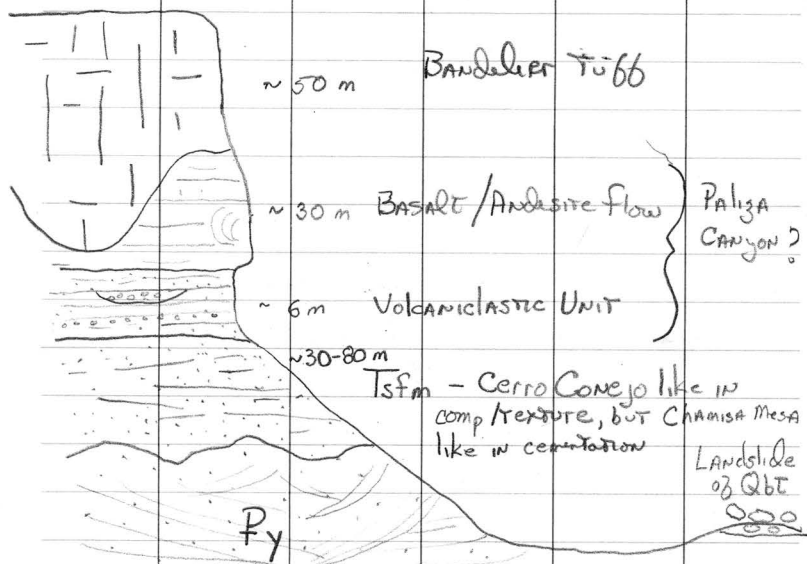 ~ 50 m BANDELIER TUFF
~ 30 m BASALT / ANDESITE flow
PALIZA
CANYON ?
~ 6 m VOLCANICLASTIC UNIT
~30-80 m
Tsfm - CERRO CONEJO like IN
comp/TEXTURE, buT CHAMISA MESA
like in cementation
LANDSlide
of QbT
Py